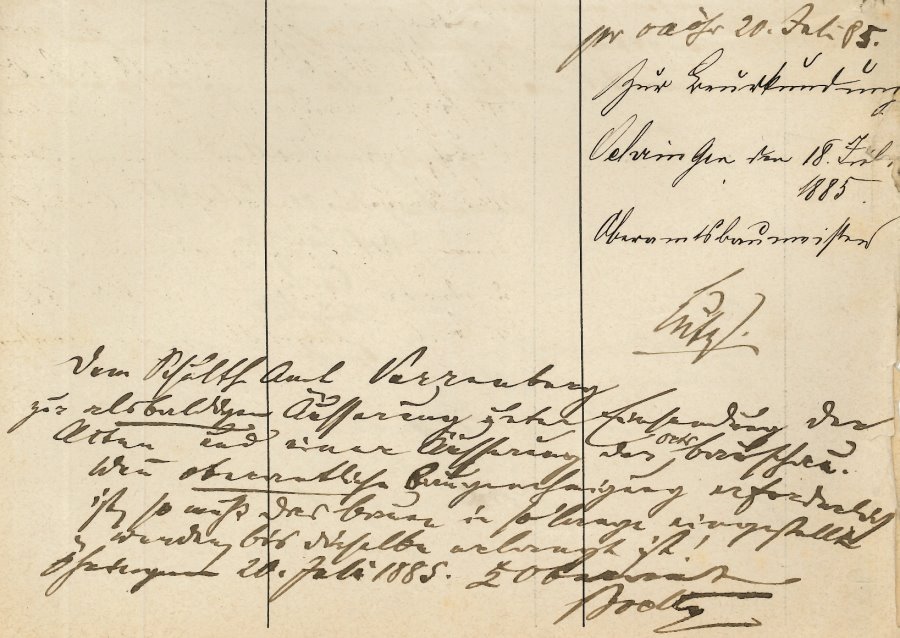 20. Juli 85.
Zur Beurkundung
Oehringen den 18. Juli
1885.
Oberamtsbaumeister
Dem Schulth Amt Verrenberg
zur alsbaldigen Äusserung unter Einsendung der
Akten und einer Äusserung der Orts bauschau.
Wenn oberamtliche Baugenehmigung erforderlich
ist, so muß das bauen in so lange eingestellt
werden, bis dieselbe erlangt ist!
Öhringen 20. Juli 1885. K Oberamt